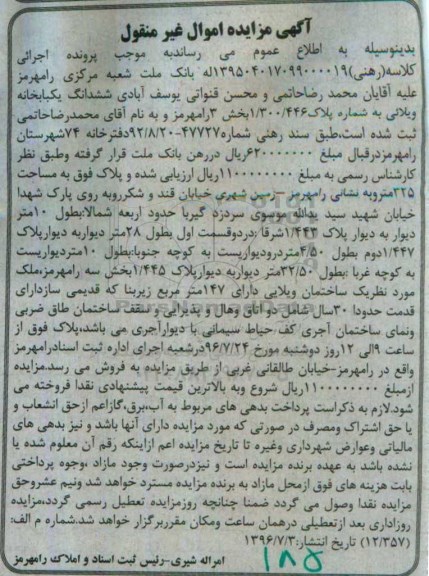 آگهی مزایده اموال غیر منقول
بدینوسیله به اطلاع عموم می رساندبه موجب پرونده اجرائی
کلاسه(رهنی)۱۳۹۵۰۴۰۱۷۰۹۹۰۰۰۰۱۹له بانک ملت شعبه مرکزی رامهرمز
علیه آقایان محمد رضاحاتمی و محسن قنواتی یوسف آبادی ششدانگ یکبابخانه
ویلائی به شماره پلاک۱/۳۰۰/۴۴۶بخش ۳رامهرمز و به نام آقای محمدرضاحاتمی
ثبت شده است،طبق سند رهنی شماره۴۷۷۲۷-۹۲/۸/۲۰دفترخانه ۷۴شهرستان
رامهرمزدرقبال مبلغ ۶۲۰۰۰۰۰۰۰ریال دررهن بانک ملت قرار گرفته وطبق نظر
کارشناس رسمی به مبلغ ۱۱۰۰۰۰۰۰۰۰ریال ارزیابی شده و پلاک فوق به مساحت
۳۲۵متروبه نشانی رامهرمز خیابان قند و شکرروبه روی پارک شهدا
خیابان شهید سید یدالله موسوی سردژد گیربا حدود اربعه شمالا:بطول ۱۰متر
دیوار به دیوار پلاک ۱/۴۴۳ شرقا :دردوقسمت اول بطول ۲۸متر دیواربه دیوارپلاک
۱/۴۴۷دوم بطول ۴/۵۰متردرودیواریست به کوچه جنوبا:بطول ۱۰متردیواریست
به کوچه غربا :بطول ۳۲/۵۰متر دیواربه دیوارپلاک ۱/۴۴۵بخش سه رامهرمز،ملک
مورد نظریک ساختمان ویلایی دارای ۱۴۷متر مربع زیربنا که قدیمی سازدارای
قدمت حدودا ۳۰سال شامل دو اتاق وهال و پذیرایی و سقف ساختمان طاق ضربی
ونمای ساختمان آجری کف حیاط سیمانی با دیوارآجری می باشد،پلاک فوق از
ساعت ۹الی ۱۲روز دوشنبه مورخ ۹۶/۷/۲۴درشعبه اجرای اداره ثبت اسنادرامهرمز
واقع در رامهرمز-خیابان طالقانی غربی از طریق مزایده به فروش می رسد.مزایده
ازمبلغ ۱۱۰۰۰۰۰۰۰۰ریال شروع وبه بالاترین قیمت پیشنهادی نقدا فروخته می
شود.لازم به ذکراست پرداخت بدهی های مربوط به آب،برق،گازاعم ازحق انشعاب و
یا حق اشتراک ومصرف در صورتی که مورد مزایده دارای آنها باشد و نیز بدهی های
مالیاتی وعوارض شهرداری وغیره تا تاریخ مزایده اعم ازاینکه رقم آن معلوم شده یا
نشده باشد به عهده برنده مزایده است و نیزدرصورت وجود مازاد ،وجوه پرداختی
بابت هزینه های فوق ازمحل مازاد به برنده مزایده مسترد خواهد شد ونیم عشروحق
مزایده نقدا وصول می گردد ضمنا چنانچه روزمزایده تعطیل رسمی گردد،مزایده
روزاداری بعد ازتعطیلی درهمان ساعت ومکان مقرربرگزار خواهد شد.شماره م الف:
(۱۲/۳۵۷) تاریخ انتشار:۱۳۹۶/۷/۳
امراله شیری-رئیس ثبت اسناد و املاک رامهرمز